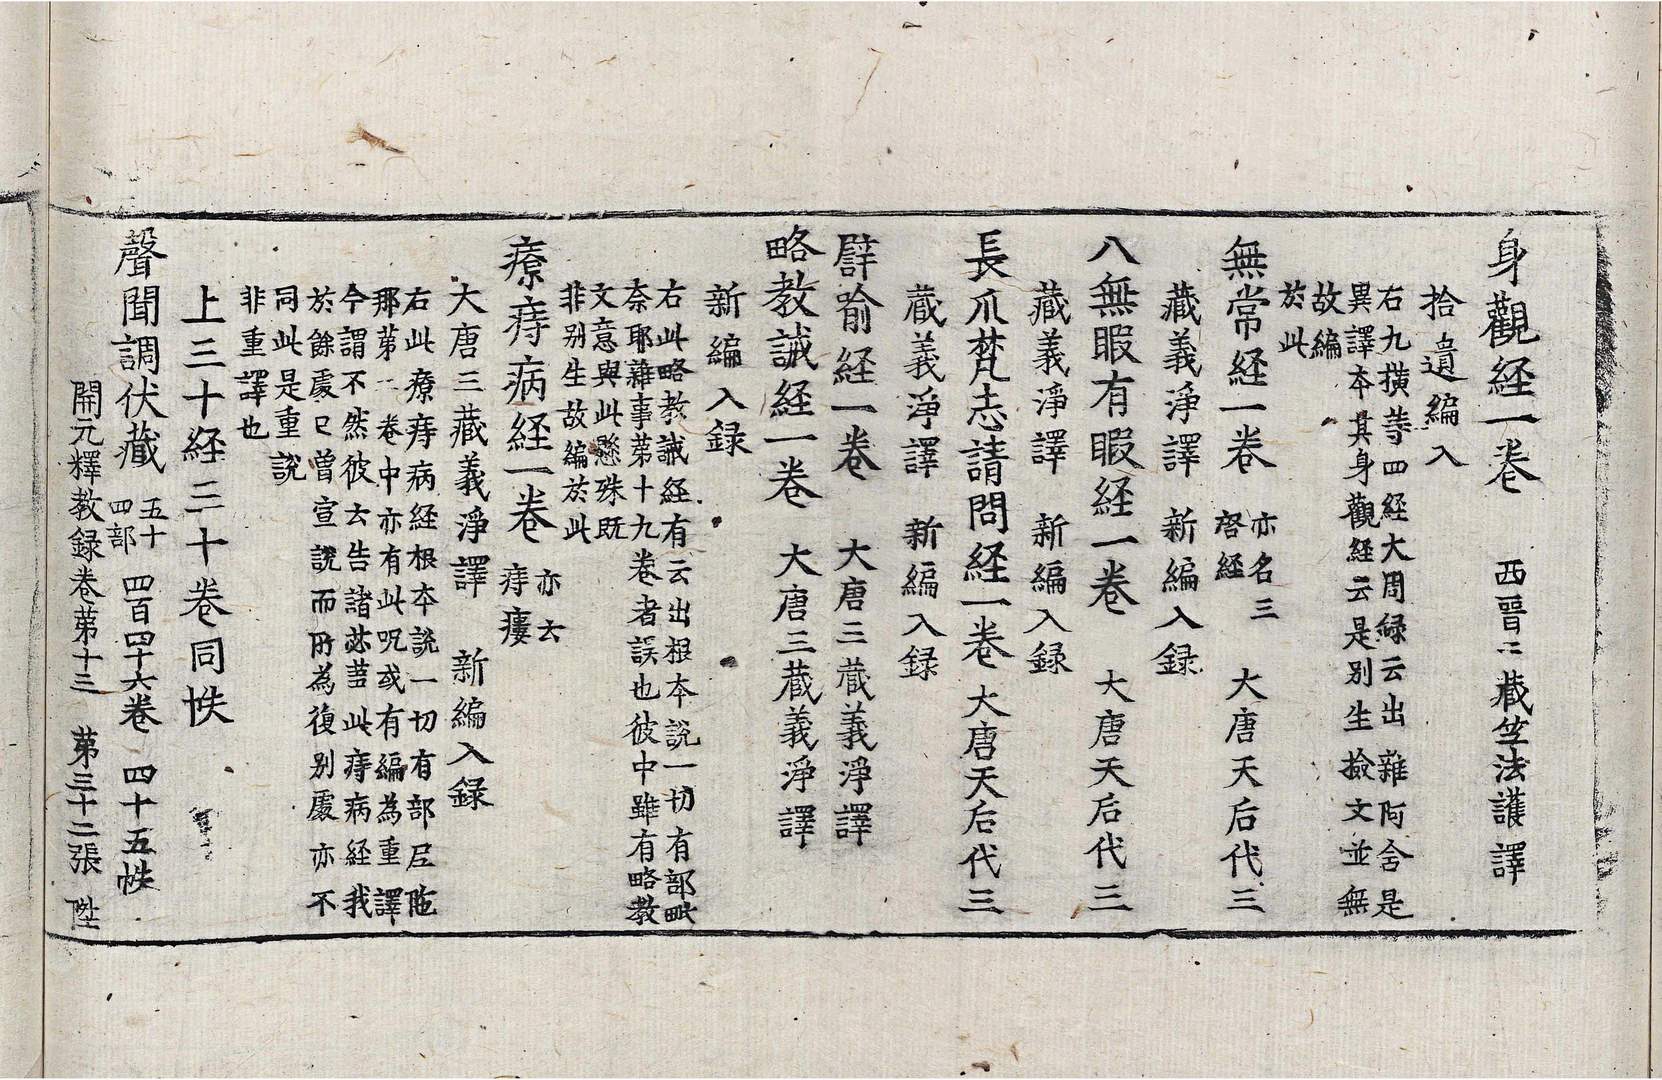 身觀経一卷　西晉三藏竺法護譯
拾遺編入
右九横等四経大周録云出雜阿含是
異譯本其身觀経云是别生撿文並無
故編
於此
無常経一卷　亦名三
啓経　大唐天后代三
藏義淨譯　新編入録
八無暇有暇経一卷　大唐天后代三
藏義淨譯　新編入録
長爪梵志請問経一卷　大唐天后代三
藏義淨譯　新編入録
譬喻経一卷　大唐三藏義淨譯
略教誡経一卷　大唐三藏義淨譯
新編入録
右此略教誡経有云出根本說一切有部毗
奈耶雜事苐十九卷者誤也彼中雖有略教
文意與此懸殊既
非别生故編於此
療痔病経一卷　亦云
痔瘻
大唐三藏義淨譯　新編入録
右此療痔病経根本說一切有部尼陁
那苐一卷中亦有此呪或有編為重譯
今謂不然彼云告諸苾蒭此痔病経我
於餘處已曽宣說而所為復别處亦不
同此是重說
非重譯也
上三十経三十卷同帙
聲聞調伏藏　五十
四部　四百四十六卷　四十五帙
開元釋教録卷苐十三　苐三十二張　陞